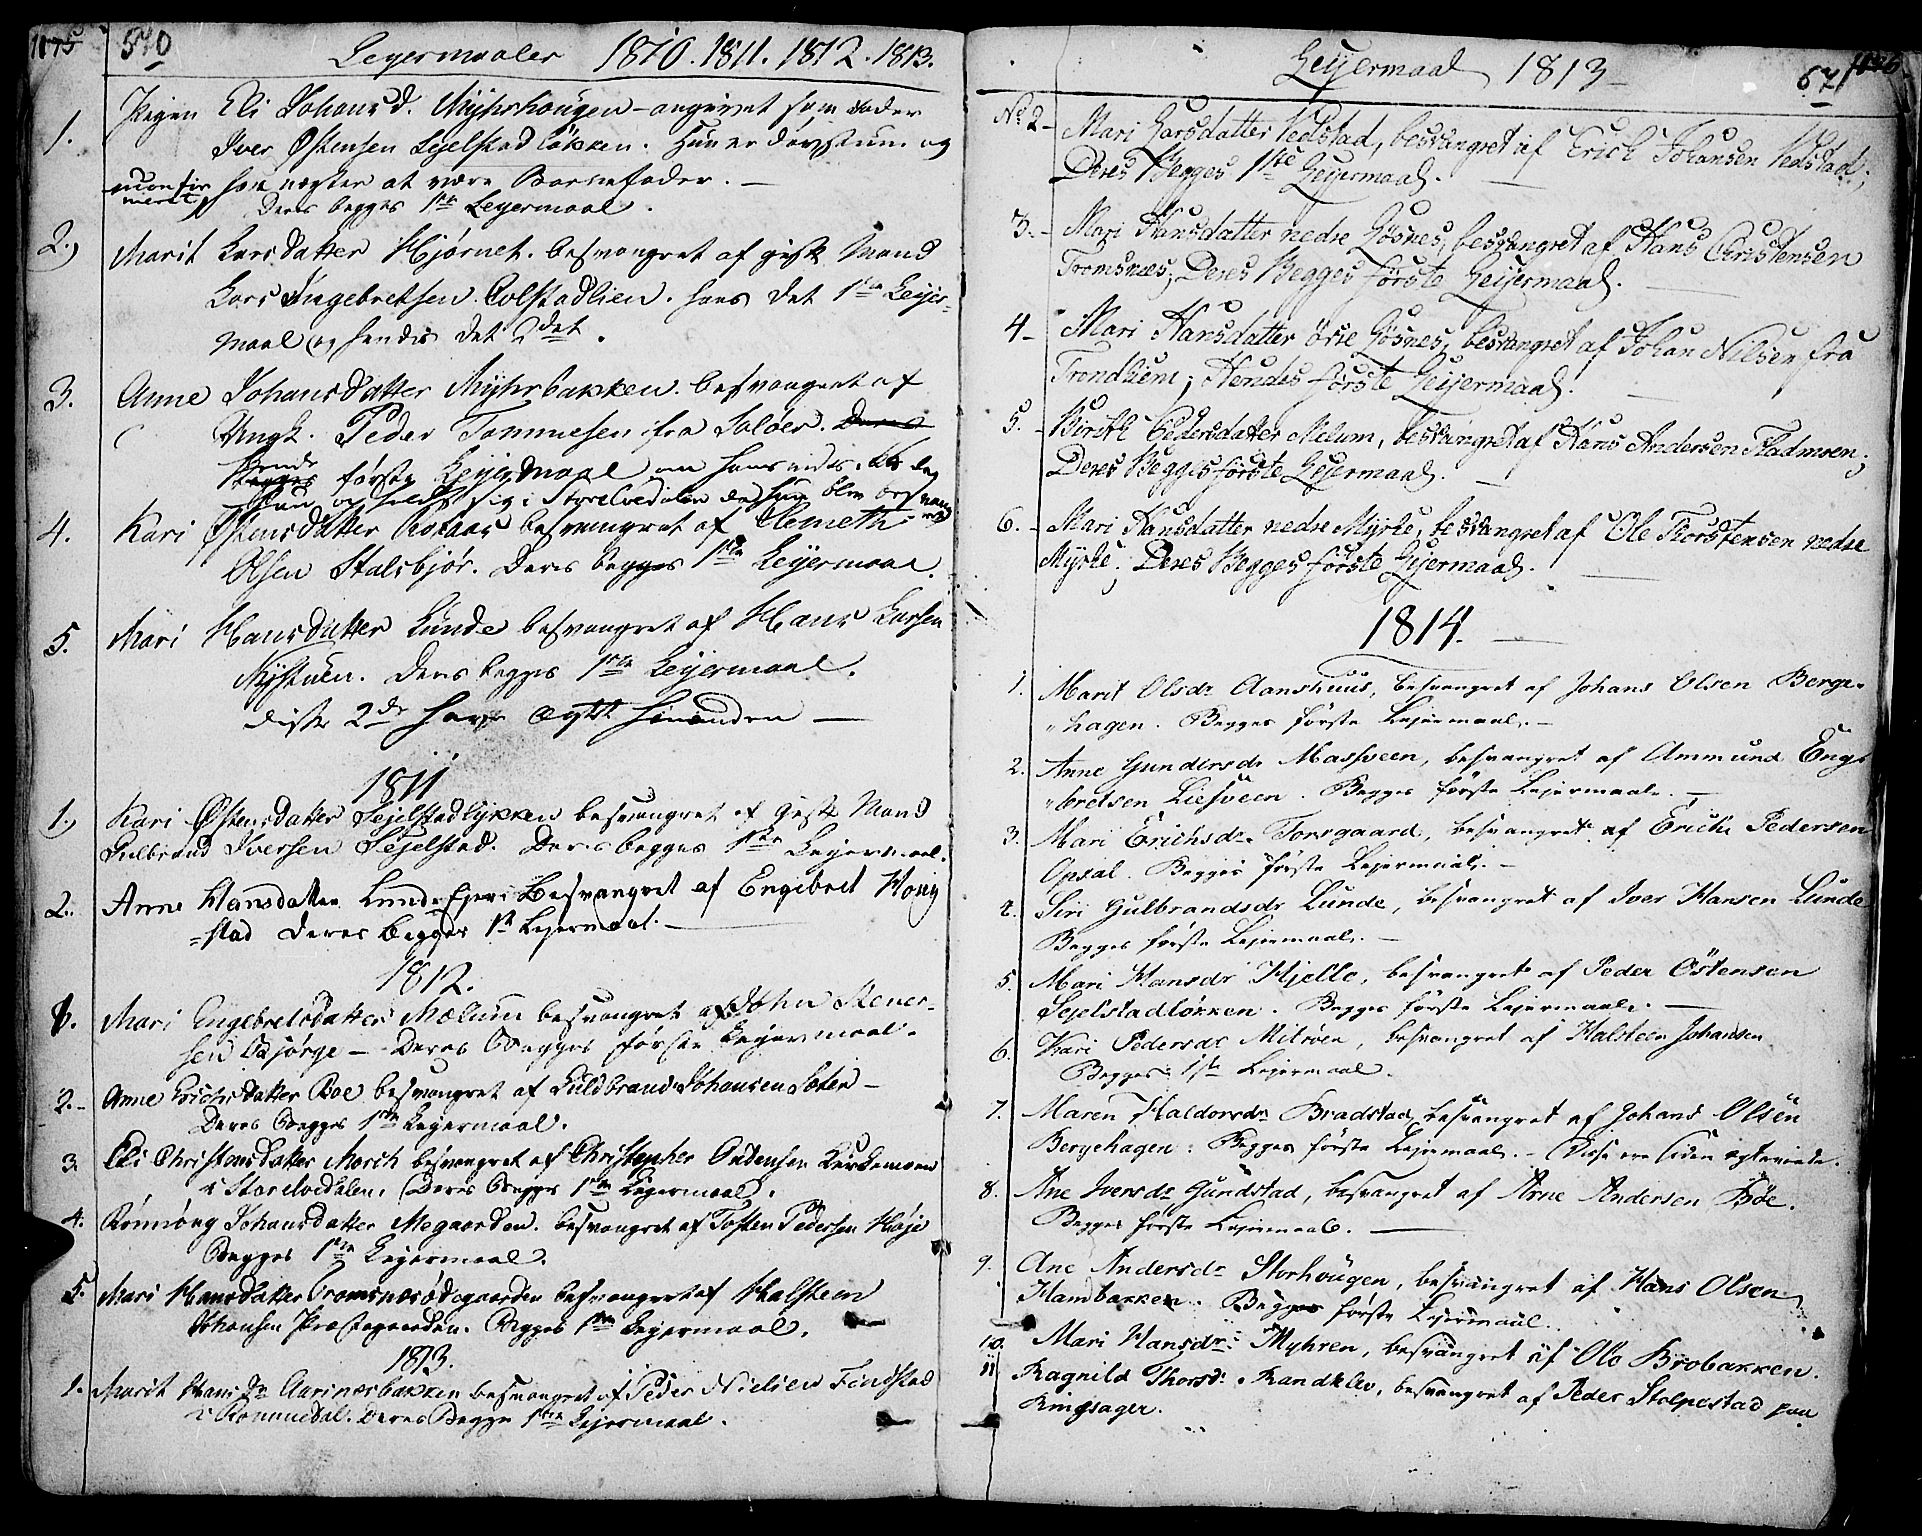 1175 570 Leyermaaler 1810. 1811. 1812. 1813.
1. Pigen Eli Johansd. Myhrhougen - angivet som Fader
Iver Østensen Sejelstad Løkken. Hun er
han negter at være Barnefader. —
Deres begges 1ste Leyermaal.
2.) Marit Larsdatter Hjørnet. besvangret af gift Mand
Lars Ingebretsen Colstadlien. hans det 1ste Leyer-
maal og hendes det 2det.
3. Anne Johansdatter Myhrbakken. besvangret af
Ungk. Peder Tommesen fra Soløer. Deres
Hendes begges første Leyermaal om hans vides ikke da
hun opholdt sig i Storelvedalen da hun blev besvangret
4. Kari Østensdatter besvangret af Clemeth
Olsen Stalsbjør. Deres begges 1ste Leyermaal.
5. Mari Hansdatter Lunde besvangret af Hans Larsen
Nystuen. Deres begges 1ste Leyermaal.
disse 2de have ægtet hinanden —
1811
1.) Kari Østensdatter Sejelstadlykken besvangret af gift Mand
Gulbrand Iversen Sejelstad. Deres begges 1ste Leyermaal.
2. Anne Hansdatter Lunde Ejer: Besvangret af Engebret Hong
=stad Deres begges 1st Lejermaal.
1812.
1. Mari Engebretsdatter Mælum besvangret af John Stener-
sen Bjørge — Deres Begges første Leyermaal.
2. - Anne Erichsdatter Boe besvangret af Guldbrand Johansen Loter —
Deres Begges 1ste Leyermaal.
3. Eli Christensdatter Morch besvangret af Christopher Ordensen Kirkemoen
i Storelvedalen. Deres Begges 1ste Leyermaal.
4. Rønnøug Johansdatter Megaarden. besvangret af Tosten Pedersen Høje
Begges 1ste Leyermaal.
5. Mari Hansdatter Tromsnesødegaarden besvangret af Halsteen
Johansen Prestegaarden. Begges 1ste Leyermaal.
1813.
1. Marit Hansdr Aarnæsbakken besvangret af Peder Nielsen Findstad
i Romuedal. Deres Begge 1ste Lejermaal.
Leijermaal 1813 571
No 2 - Mari Larsdatter Vedstad, besvangret af Erich Johansen Vedstad;
Deres Begges 1ste Leijermaal. —
3. - Mari Hansdatter nedre Gósnes, besvangret af Hans Christensen
Tromsnæs; Deres Begges første Leijermaal.
4 - Mari Hansdatter óvre Gósnes, besvangret af Johan Nilsen fra
Trondhiem; Hendes første Leijermaal.
5. - Birith Pedersdatter Melum, besvangret af Hans Andersen Stadmoen;
Deres Begges første Leijermaal. —
6. - Mari Hansdatter nedre Myrhe, besvangret af Ole Thorstensen nedre
Myrhe; Deres Begges første Leijermaal.
1814. —
1. Marit Olsdr Aanshuus, besvangret af Johans Olsen Berge-
„hagen. Begges første Lejermaal. —
2. Anne Gundersdr Mashveen, besvangret af Ammund Enge
„bretsen Liesveen. Begges første Lejermaal. —
3. Mari Erichsdr Torsgaard, besvangret af Erich Pedersen
Opsal. Begges første Lejermaal. —
4. Siri Gulbrandsdr Lunde, besvangret af Iver Hansen Lunde
Begges første Lejermaal. —
5. Mari Hansdr Hjelle, besvangret af Peder Östensen
Sejelstadløkken. Begges første Lejermaal. —
6. Kari Pedersdr Milróen, besvangret af Halsteen Johansen
Begges 1ste Lejermaal.
7. Maren Haldorsdr Bradstad, besvangret af Johans Olsen
Bergehagen: Begges første Lejermaal. - Disse ere siden egteviede.
8. Ane Iversdr Gundstad, besvangret af Arne Andersen Bóe.
Begges første Lejermaal. —
9. Ane Andersdr Storhougen, besvangret af Hans Olsen
Hambakken. Begges første Lejermaal.
10. Mari Hansdr Myhren, besvangret af Ole Brobakken.
11 Ragnild Thorsdr Randklev, besvangret af Peder Stolpestad paa
Ringsager.